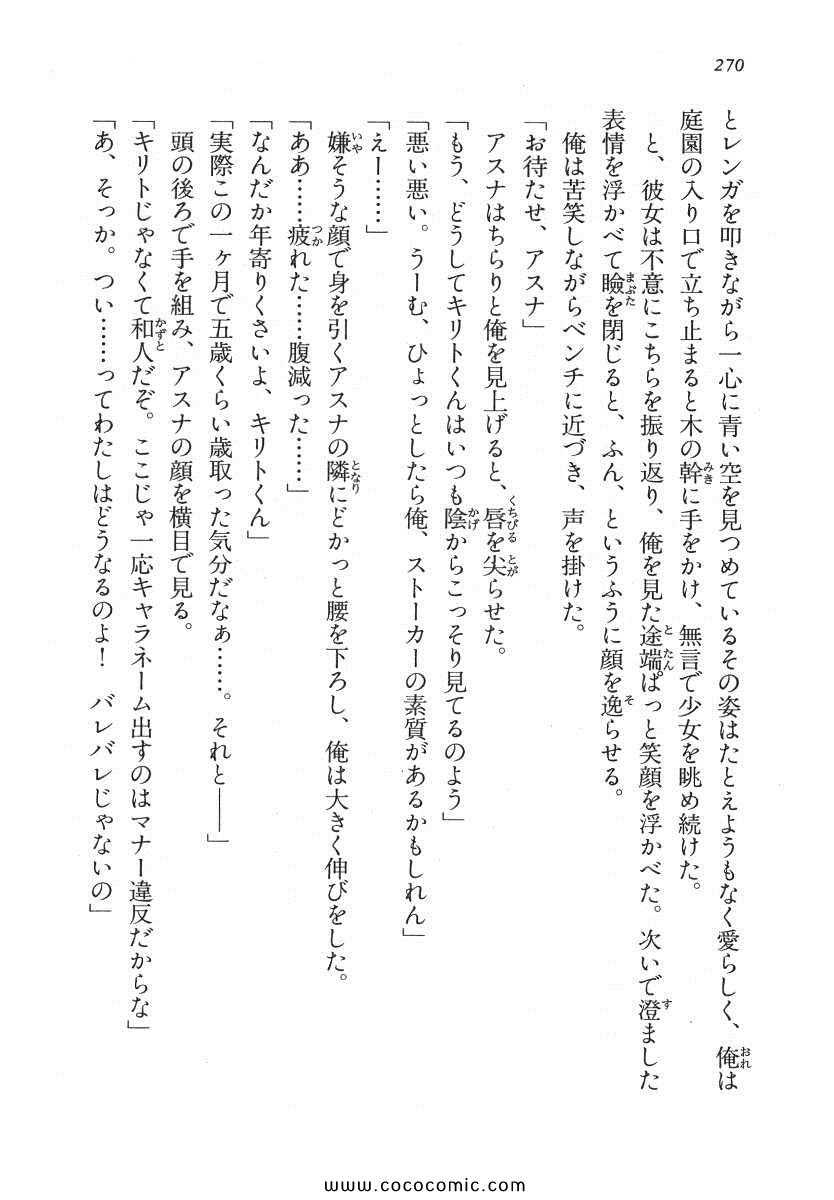 270
とレンガを叩きながら一心に青い空を見つめているその姿はたとえようもなく愛らしく、俺は
庭園の入り口で立ち止まると木の幹に手をかけ、無言で少女を眺め続けた。
と、彼女は不意にこちらを振り返り、俺を見た途端ぱっと笑顔を浮かべた。次いで澄ました
表情を浮かべて瞼を閉じると、ふん、というふうに顔を逸らせる。
俺は苦笑しながらベンチに近づき、声を掛けた。
「お待たせ、アスナ」
アスナはちらりと俺を見上げると、唇を尖らせた。
「もう、どうしてキリトくんはいつも陰からこっそり見てるのよう」
「悪い悪い。うーむ、ひょっとしたら俺、ストーカーの素質があるかもしれん」
「えー……」
嫌そうな顔で身を引くアスナの隣にどかっと腰を下ろし、俺は大きく伸びをした。
「ああ……疲れた……腹減った……」
「なんだか年寄りくさいよ、キリトくん」
「実際この一ヶ月で五歳くらい歳取った気分だなぁ……。それと――」
頭の後ろで手を組み、アスナの顔を横目で見る。
「キリトじゃなくて和人だぞ。ここじゃ一応キャラネーム出すのはマナー違反だからな」
「あ、そっか。つい……ってわたしはどうなるのよ！　バレバレじゃないの」
www.cococomic.com